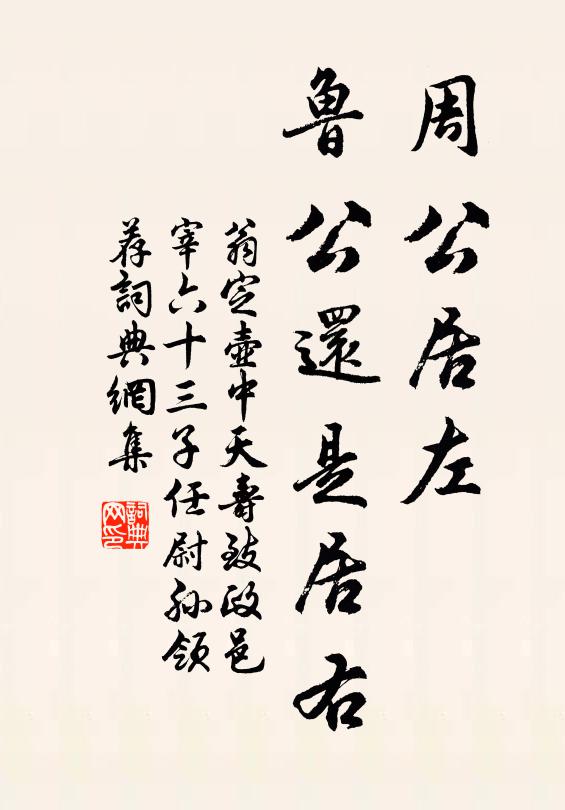 周公居左
魯公還是居右
翁定壺中天壽致政邑
宰六十三子任尉孫領
薦詞典網集
詞典
网印